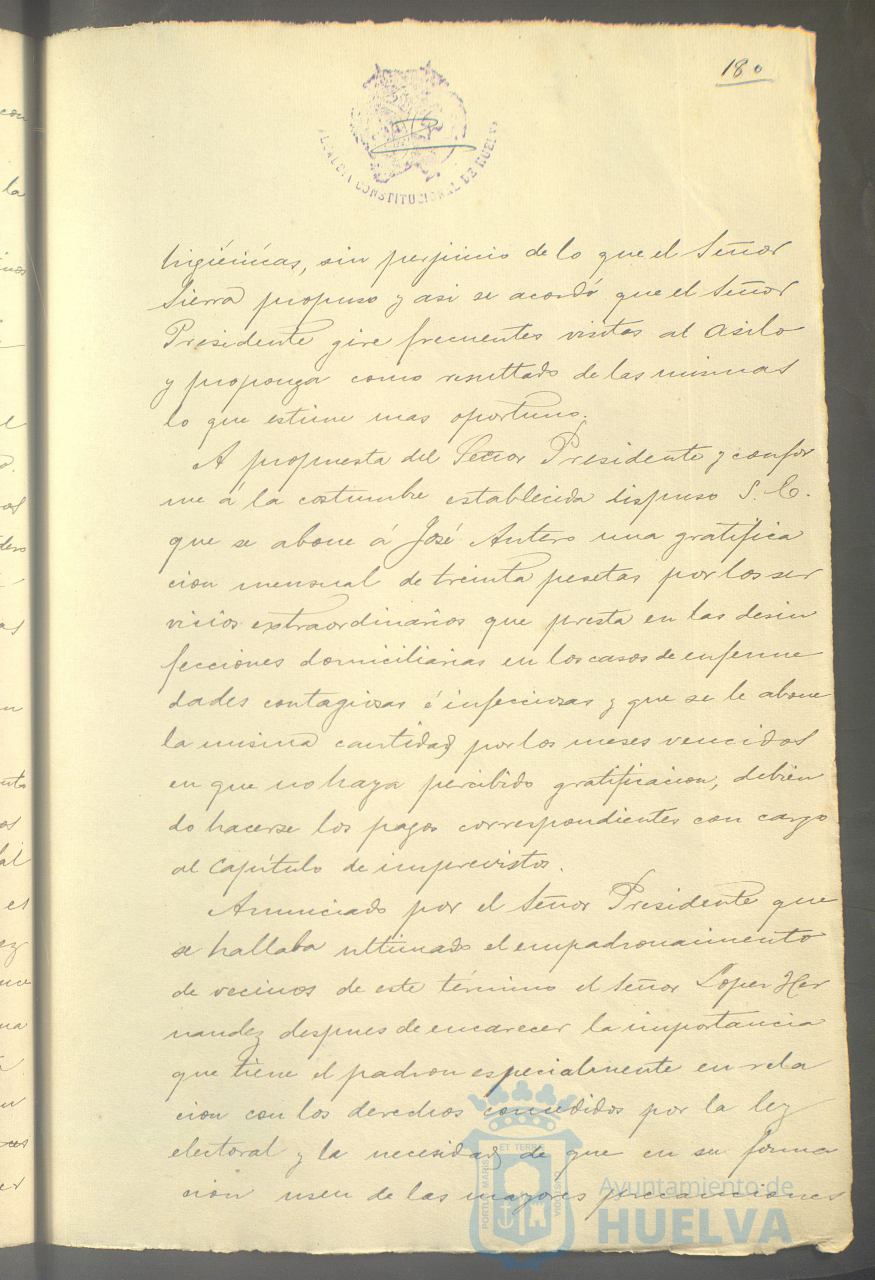 180
ALCALDIA CONSTITUCIONAL DE HUELVA
higiénicas, sin perjuicio de lo que el Señor
Sierra propuso y asi se acordó que el Señor
Presidente gire frecuentes visitas al Asilo
y proponga como resultado de las mismas
lo que estime mas oportuno.
A propuesta del Señor Presidente y confor
me á la costumbre establecida dispuso S. E.
que se abone á José Antero una gratifica
cion mensual de treinta pesetas por los ser
vicios extraordinarios que presta en las desin
fecciones domiciliarias en los casos de enferme
dades contagiosas é infecciosas y que se le abone
la misma cantidad por los meses vencidos
en que no haya percibido gratificacion, debien
do hacerse los pagos correspondientes con cargo
al Capítulo de imprevistos.
Anunciado por el Señor Presidente que
se hallaba ultimado el empadronamiento
de vecinos de este término el Señor Lopez Her
nandez despues de encarecer la importancia
que tiene el padron especialmente en rela
cion con los derechos concedidos por la ley
electoral y la necesidad de que en su forma
cion usen de las mayores precauciones
PORTUS MARIS ET TERRE CUSTODIA
Ayuntamiento de
HUELVA